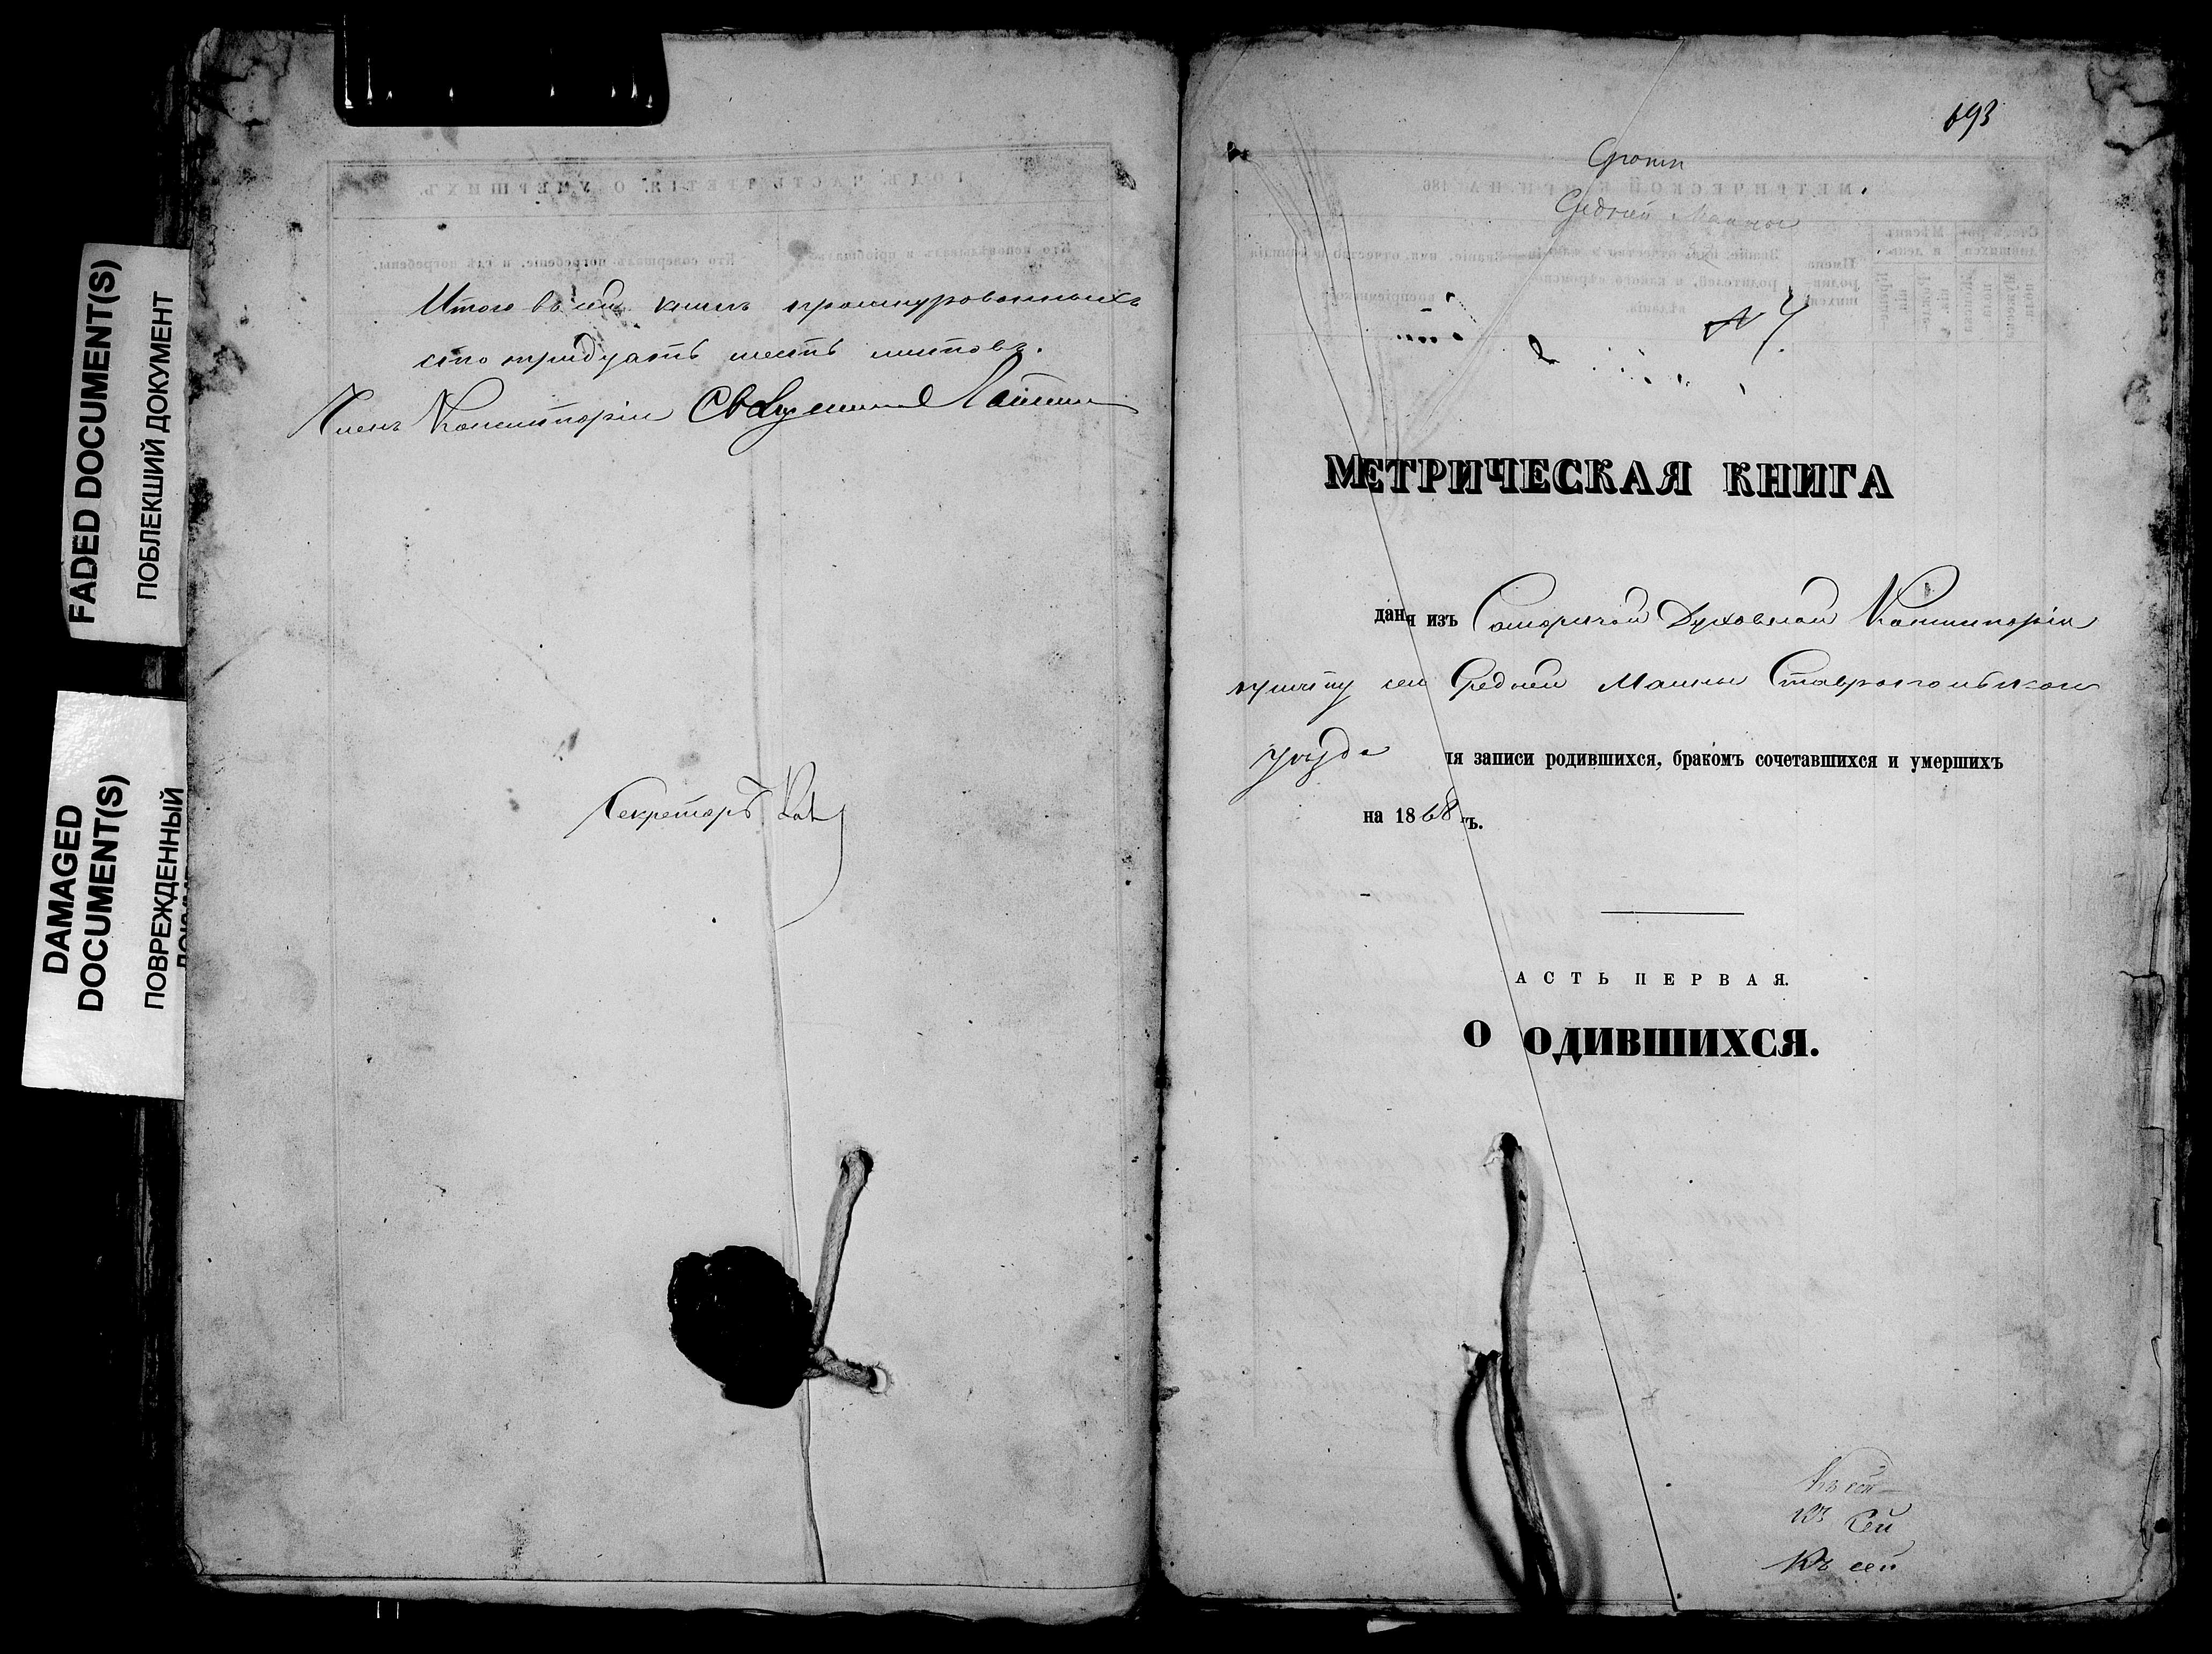 FADED DOCUMENT(S)
ПОБЛЕКШИЙ ДОКУМЕНТ
DAMAGED
DOCUMENT(S)
ПОВРЕЖДЕННЫЙ
Итого въ сей книгѣ прошнурованныхъ
сто тридцать шесть листовъ.
Членъ Консисторіи Священникъ
Секретарь
693
Средней Маины
№ 4
МЕТРИЧЕСКАЯ КНИГА
даня изъ Самарской Духовной Консисторіи
причту села Средней Маины Ставропольскаго
уѣзда ля записи родившихся, бракомъ сочетавшихся и умершихъ
на 1868 ъ.
АСТЬ ПЕРВАЯ.
О ОДИВШИХСЯ.
Къ сей
Къ сей
Къ сей